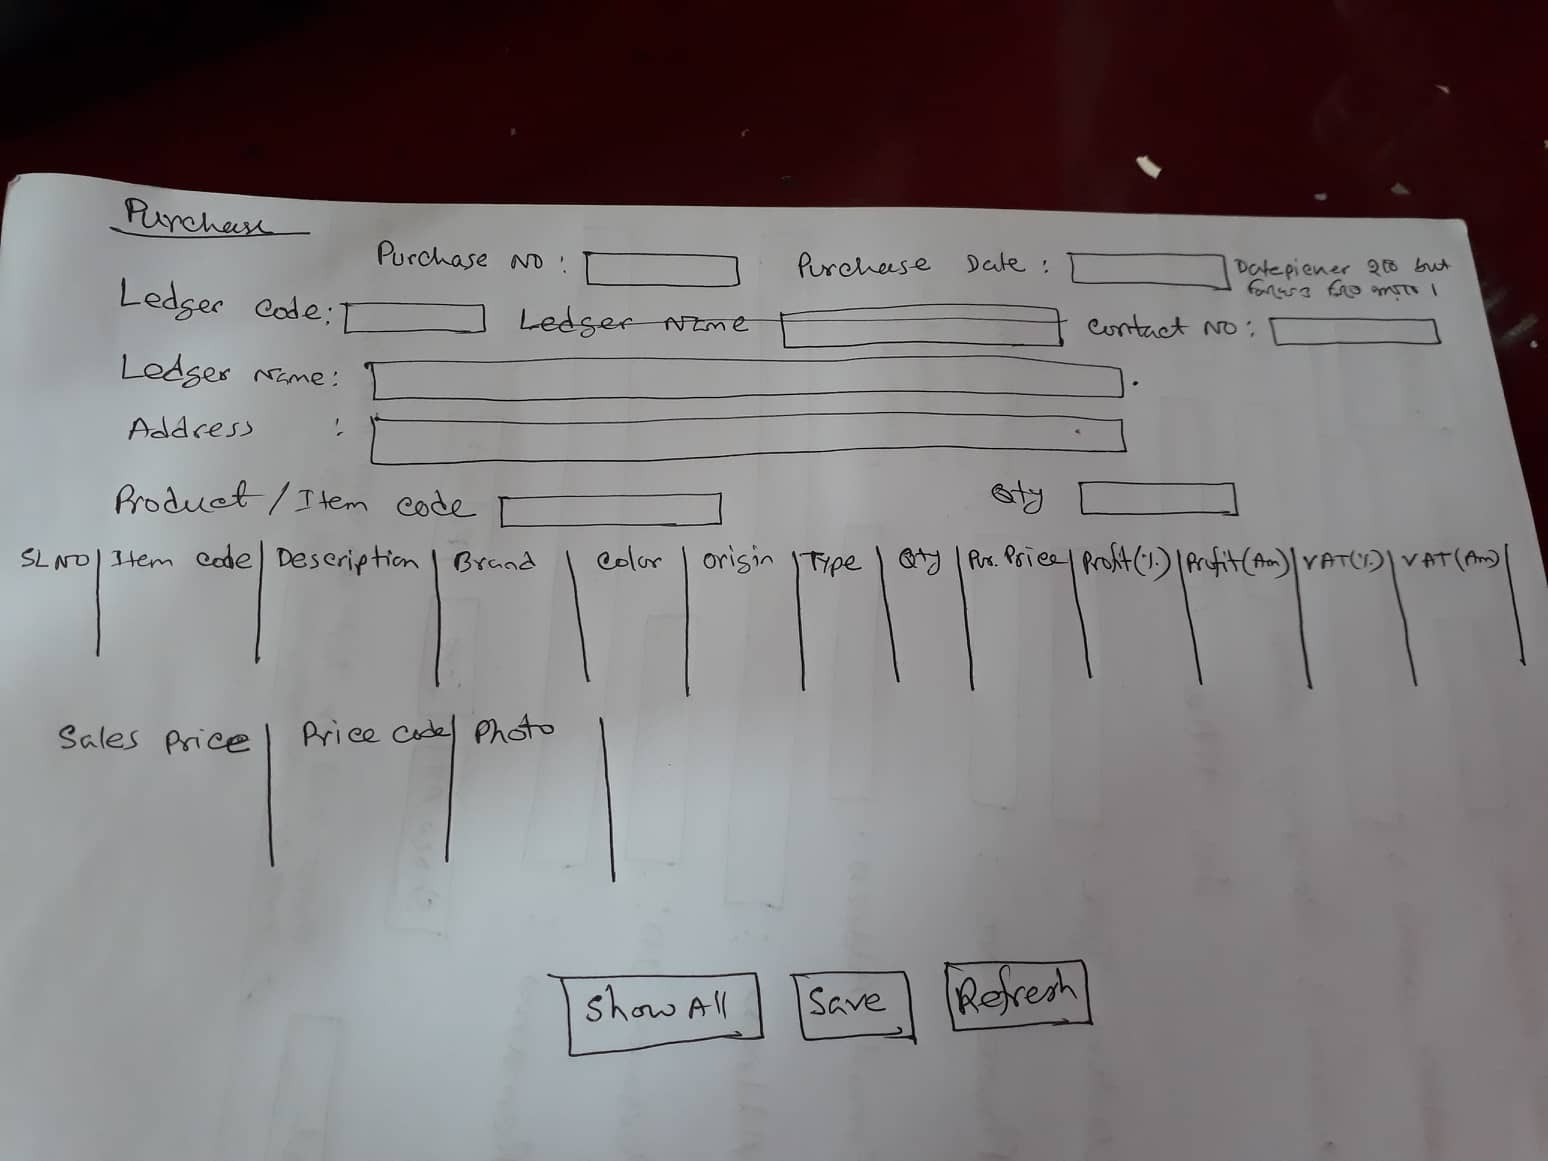 Purchase
Purchase NO :
Purchase Date :
Datepicner হবে but
Ledger Code:
Ledger Name
Contact NO :
Ledger Name :
Address :
Product / Item code
Qty
SL NO | Item code | Description | Brand | Color | Origin | Type | Qty | Pur. Price | Profit (%) | Profit (Am) | VAT (%) | VAT (Am) |
Sales Price | Price code | Photo |
Show All
Save
Refresh